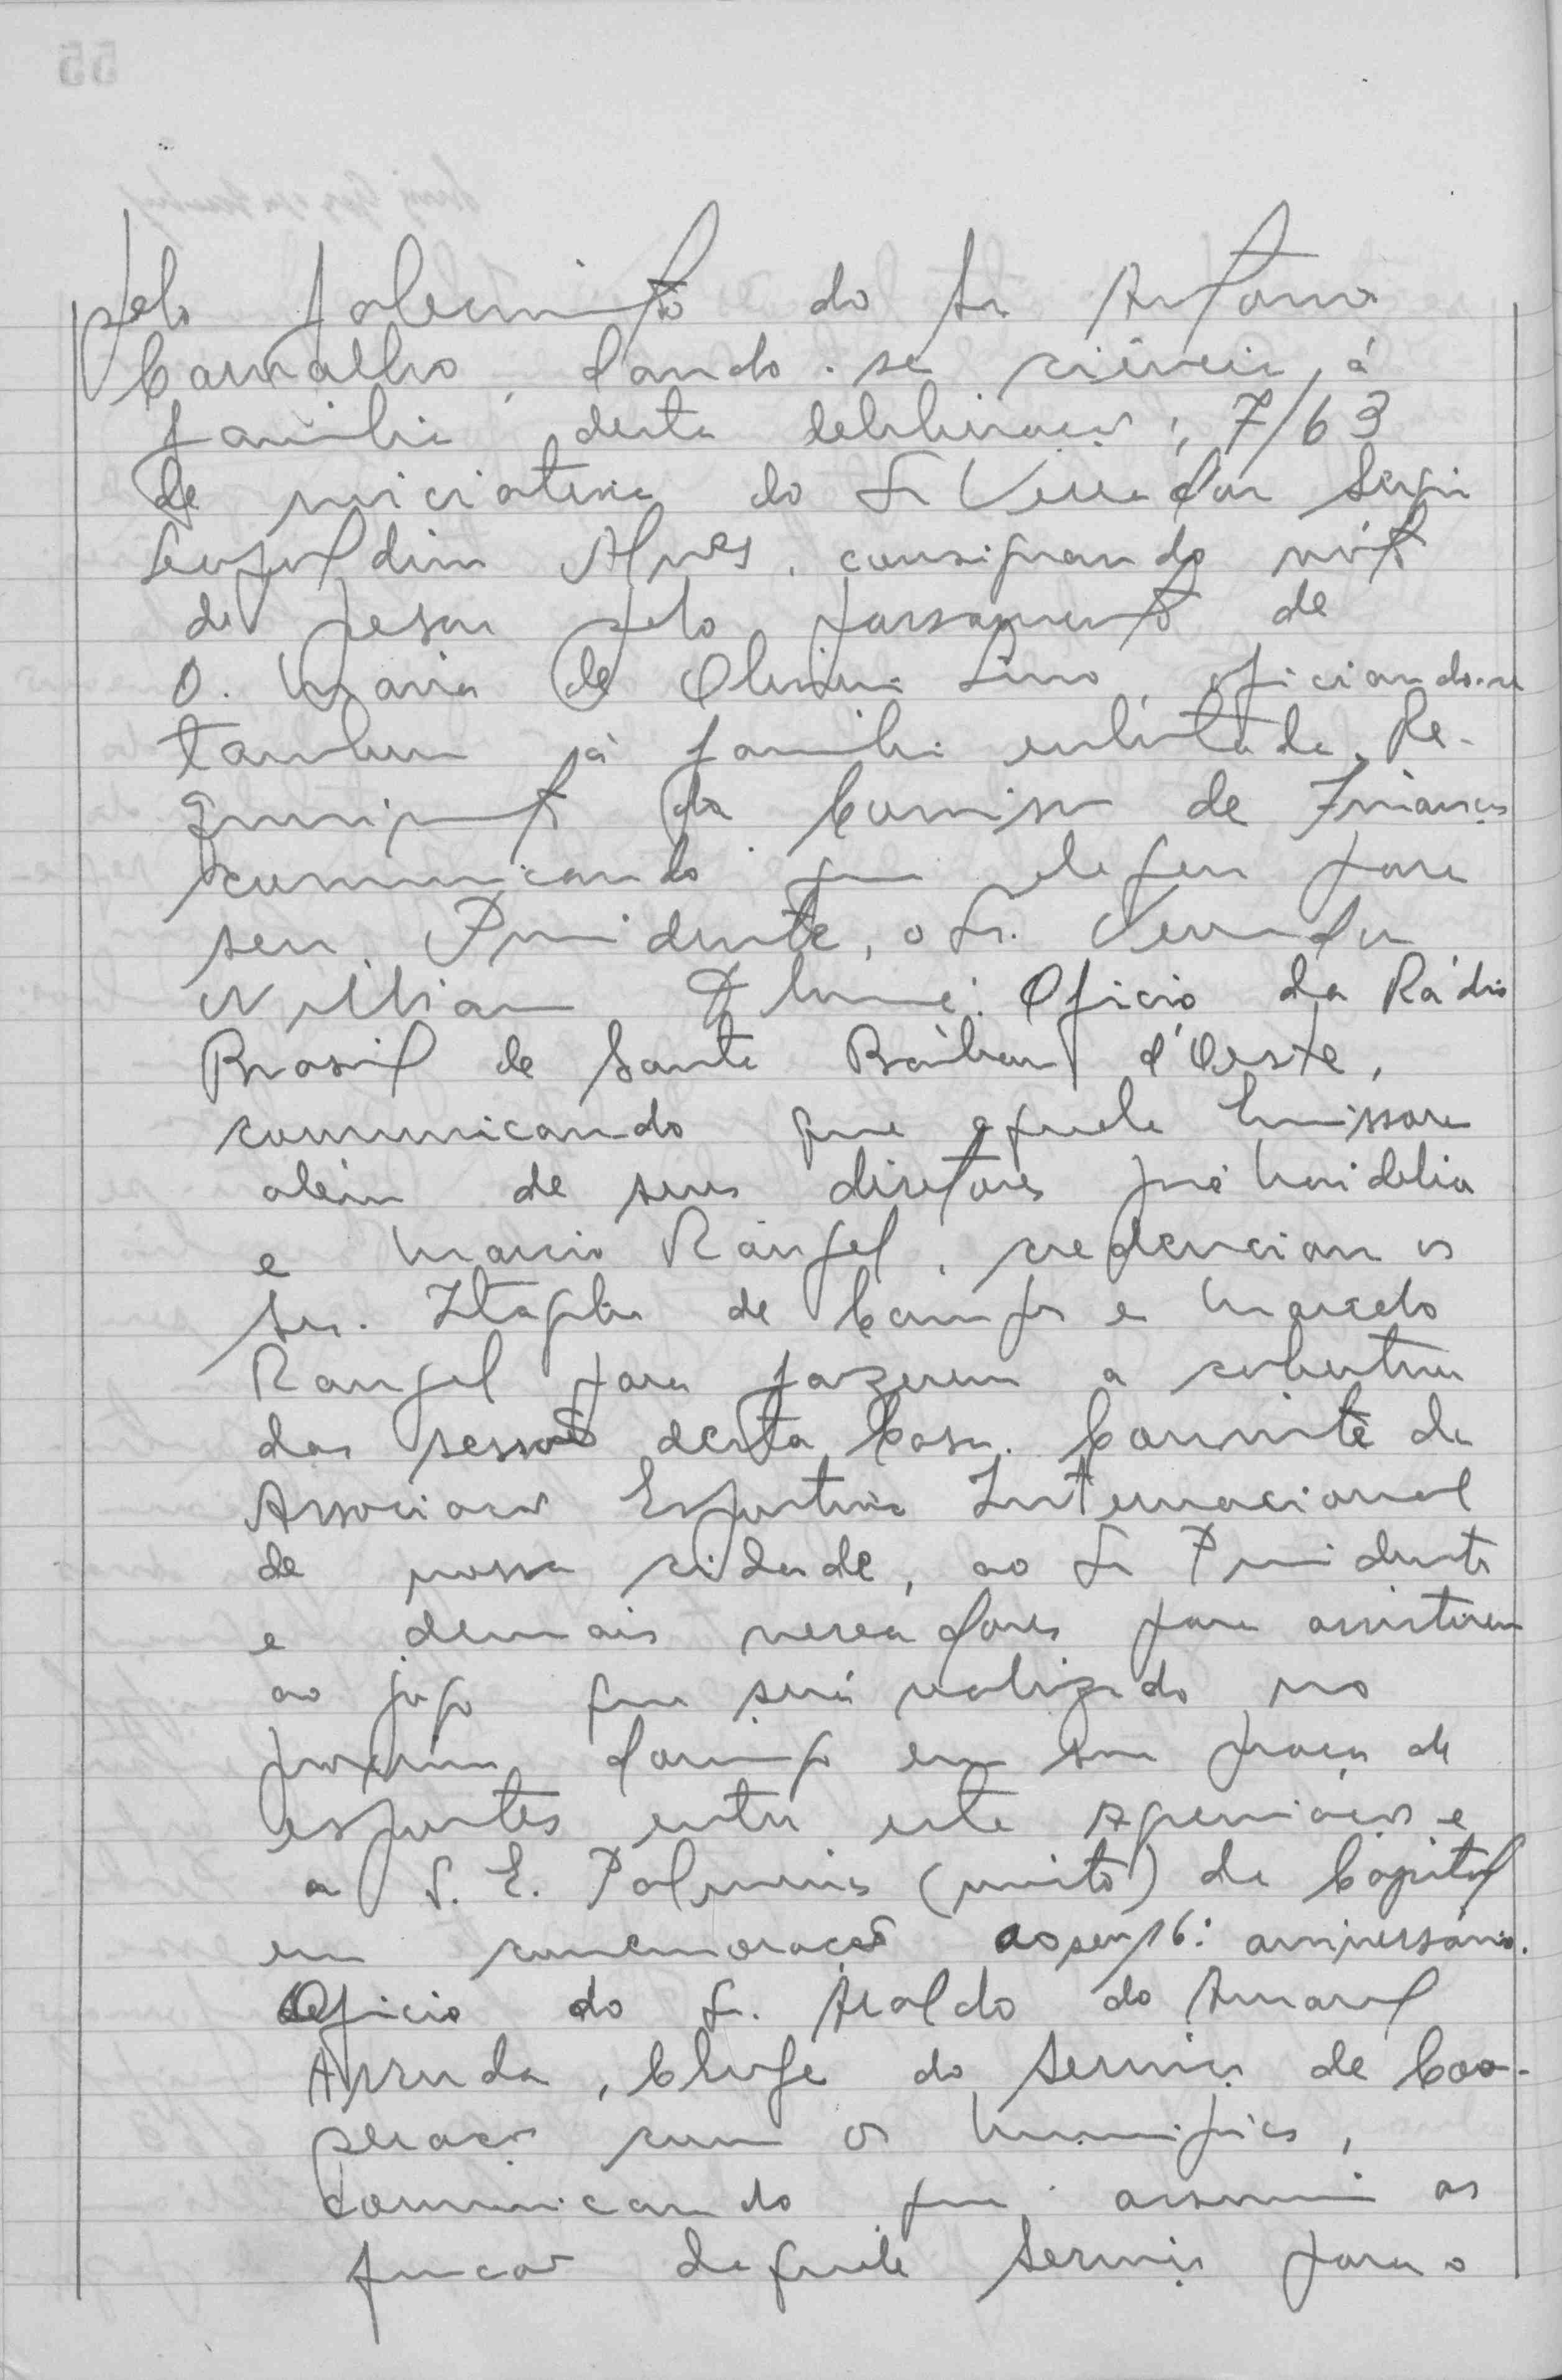 pelo falecimento do Sr Antonio
Carvalho, dando-se ciência á
familia desta deliberação; 7/63
de iniciativa do Sr Vereador Sergio
Leopoldino Alves, consignando voto
de pesar pelo passamento de
D. Maria de Oliveira Lino, oficiando-se
tambem à familia enlutada. Re-
querimento da Comissão de Finanças
comunicando que elegeu para
seu Presidente, o Sr. Vereador
Oficio da Rádio
Brasil de Santa Bárbara d'Oeste,
comunicando que aquela Emissora
além de seus diretores José
e Marcio Rangel, credenciou os
Srs. de Campos e Marcelo
Rangel para fazerem a cobertura
das sessões desta Casa. Convite da
Associação Esportiva Internacional
de nossa cidade, ao Sr Presidente
e demais vereadores para assistirem
ao jogo que será realizado no
proximo domingo em sua praça de
esportes entre esta agremiação e
a S. E. Palmeiras (mixto) da Capital
em comemoração ao seu 16º aniversário.
Oficio do Sr. Araldo do Amaral
Arruda, Chefe do Serviço de Coo-
peração com os Municipios,
comunicando que assumiu as
funções daquele Serviço para o